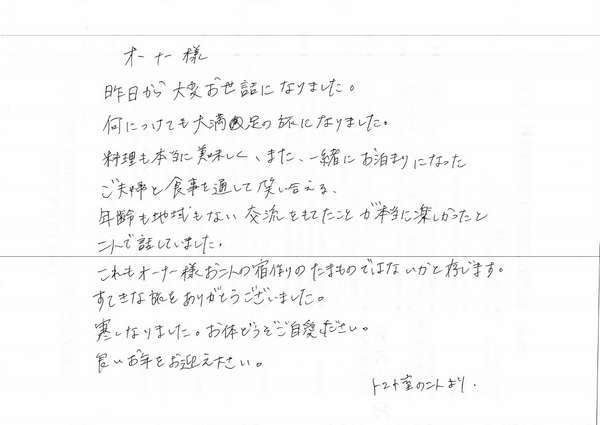 オーナー様
昨日から大変お世話になりました。
何につけても大満足の旅になりました。
料理も本当に美味しく、また、一緒にお泊まりになった
ご夫婦と食事を通して笑い合える、
年齢も地域もない交流をもてたことが本当に楽しかったと
二人で話していました。
これもオーナー様お二人の宿作りのたまものではないかと存じます。
すてきな旅をありがとうございました。
寒くなりました。お体どうぞご自愛ください。
良いお年をお迎え下さい。
トマト室の二人より.